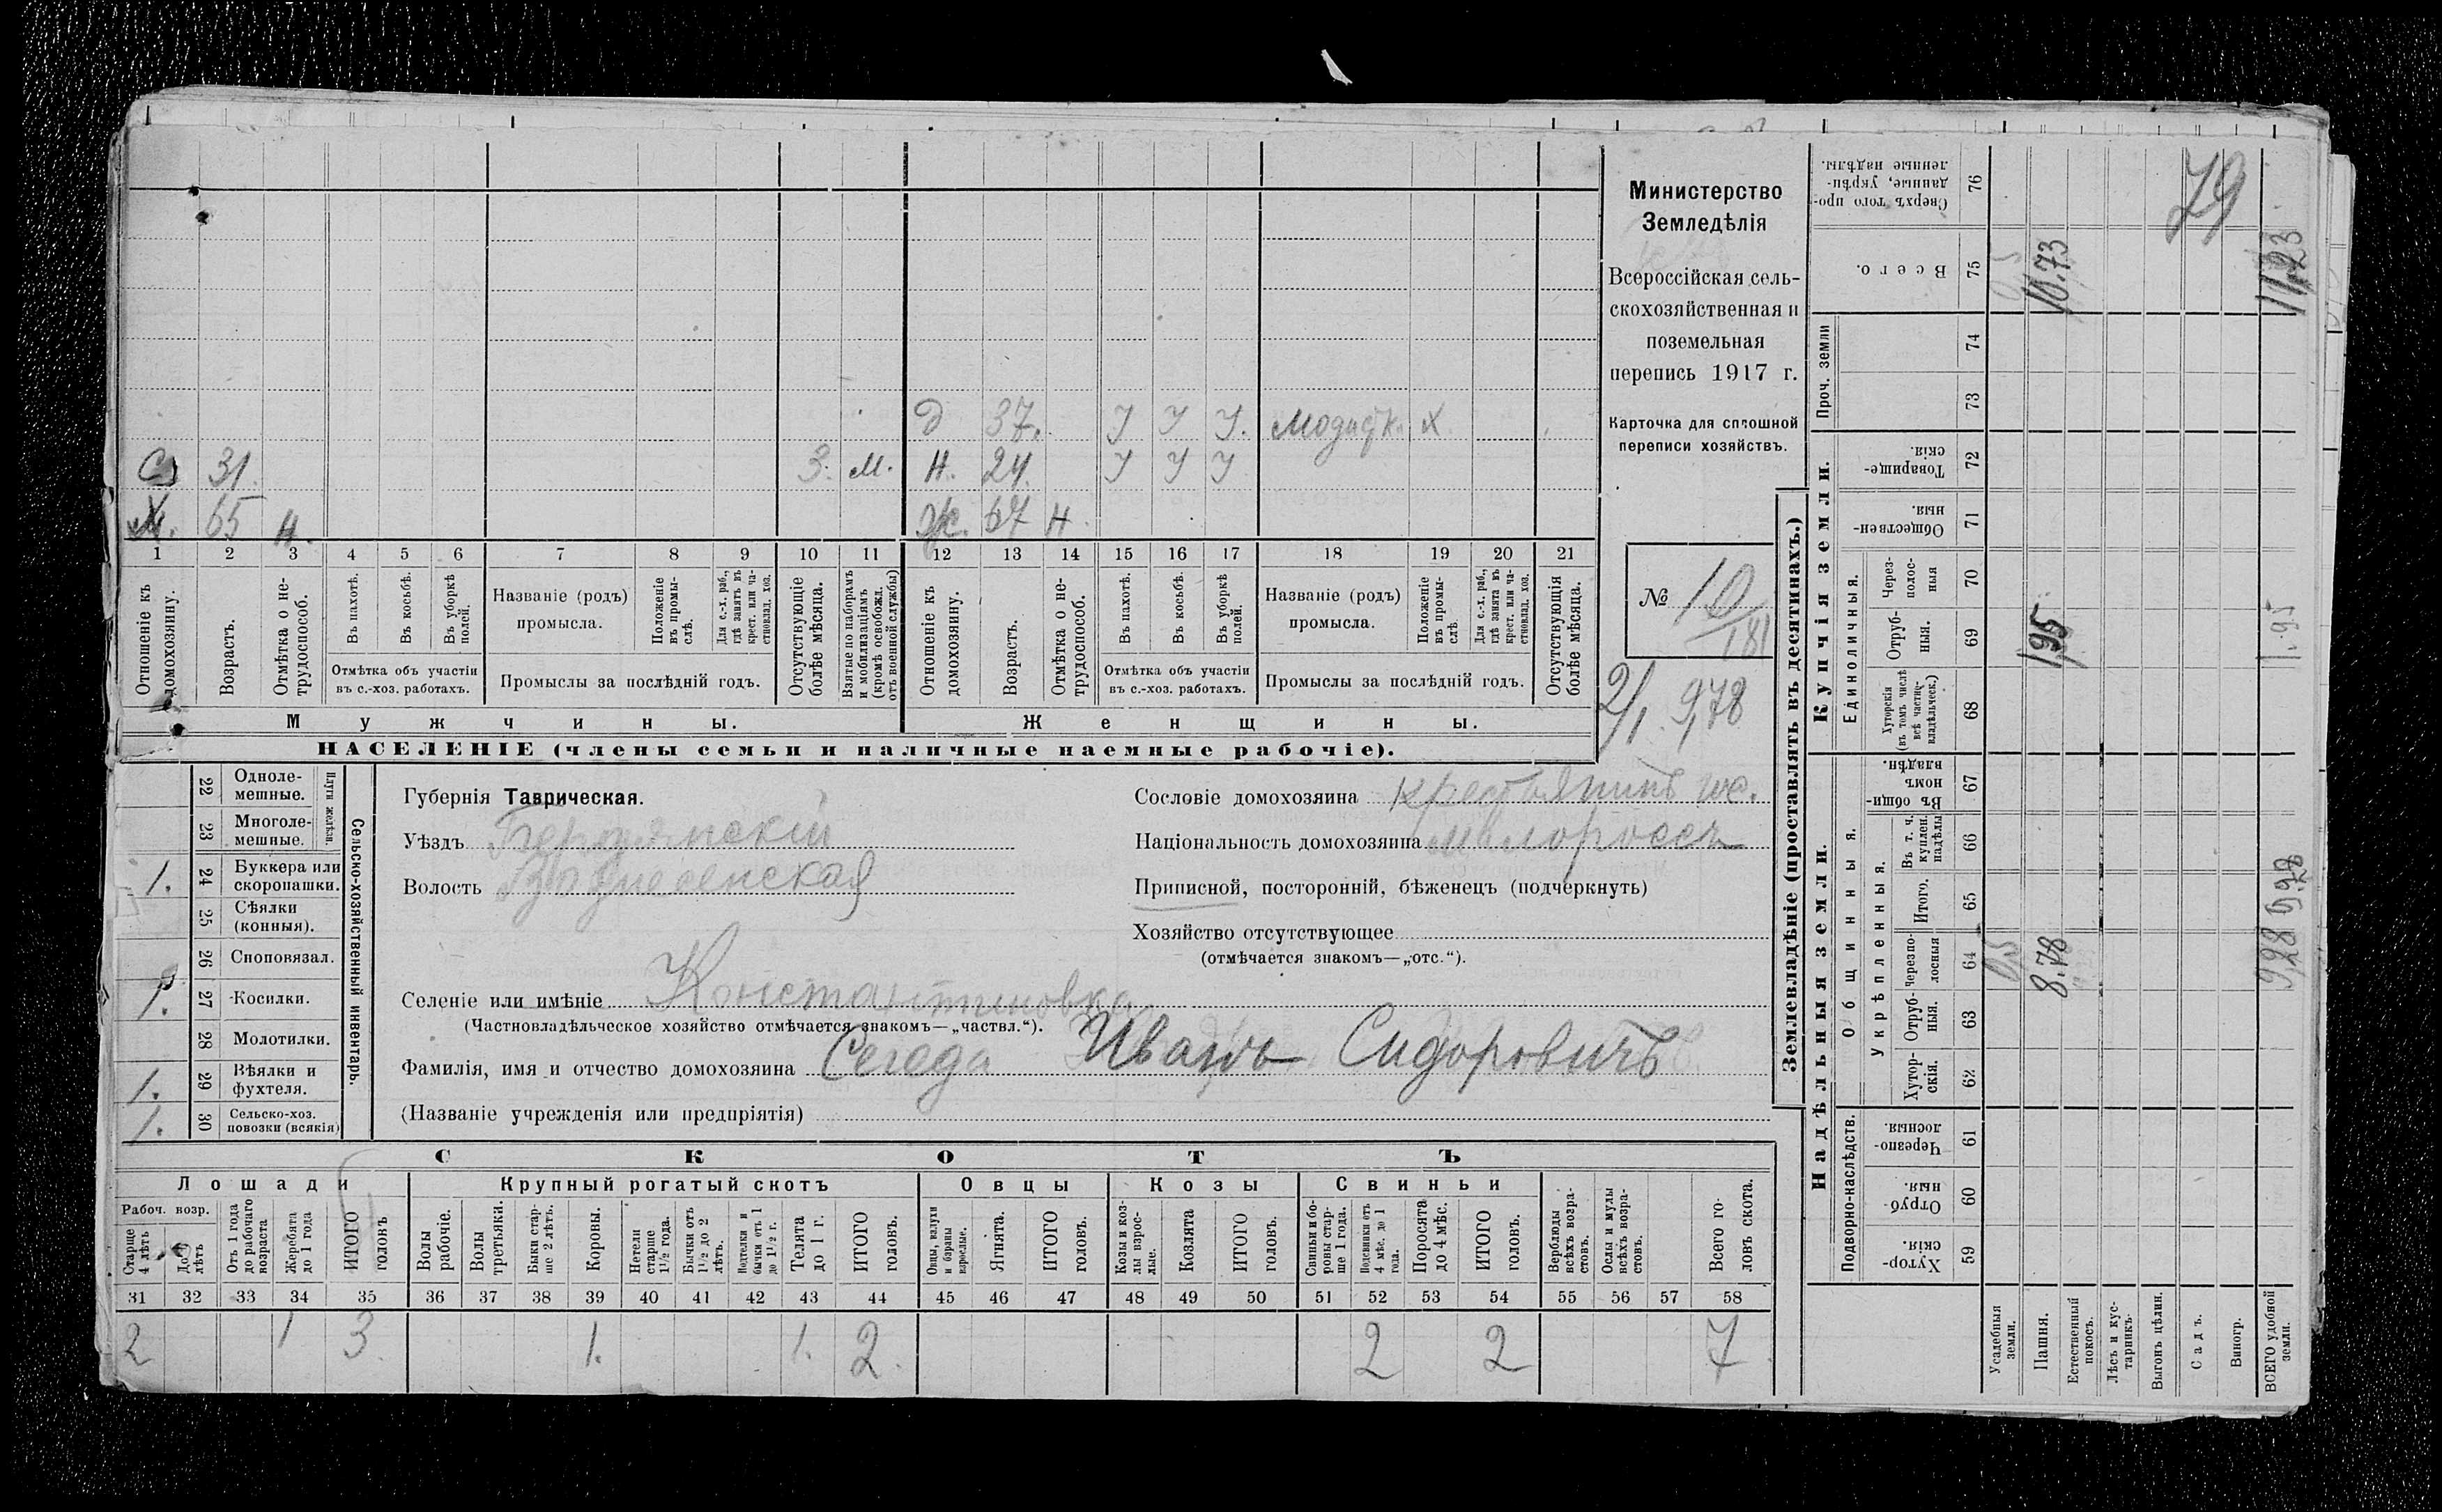 Министерство
Земледѣлія
Всероссійская сель-
скохозяйственная и
поземельная
перепись 1917 г.
Карточка для сплошной
переписи хозяйствъ.
№ 10
181
2/1. 9,78
Д 37. У У У. модистк. Х
С 31. 3. М. Н. 24. У У У
Х. 65 Н. Ж. 67 Н.
1 2 3 4 5 6 7 8 9 10 11 12 13 14 15 16 17 18 19 20 21
Отношеніе къ домохозяину.
Возрастъ.
Отмѣтка о не-трудоспособ.
Въ пахотѣ.
Въ косьбѣ.
Въ уборкѣ полей.
Отмѣтка объ участіи въ с.-хоз. работахъ.
Названіе (родъ) промысла.
Положеніе въ промы-слѣ.
Для с.-х. раб., гдѣ занятъ въ крест. или ча-стновлад. хоз.
Промыслы за послѣдній годъ.
Отсутствующіе болѣе мѣсяца.
Взятые по наборамъ и мобилизаціямъ (кромѣ освобожд. отъ военной службы)
Отношеніе къ домохозяину.
Возрастъ.
Отмѣтка о не-трудоспособ.
Въ пахотѣ.
Въ косьбѣ.
Въ уборкѣ полей.
Отмѣтка объ участіи въ с.-хоз. работахъ.
Названіе (родъ) промысла.
Положеніе въ промы-слѣ
Для с.-х. раб., гдѣ занята въ крест. или ча-стновлад. хоз.
Промыслы за послѣдній годъ.
Отсутствующія болѣе мѣсяца.
Мужчины. Женщины.
НАСЕЛЕНІЕ (члены семьи и наличные наемные рабочіе).
Сельско-хозяйственный инвентарь.
Плуги желѣзн.
22 Одноле-мешные.
23 Многоле-мешные.
1. 24 Буккера или скоропашки.
25 Сѣялки (конныя).
26 Сноповязал.
1. 27 Косилки.
28 Молотилки.
1. 29 Вѣялки и фухтеля.
1. 30 Сельско-хоз. повозки (всякія)
Губернія Таврическая.
Уѣздъ Бердянскій
Волость Вознесенская
Сословіе домохозяина крестьянинъ
Національность домохозяина малороссъ
Приписной, посторонній, бѣженецъ (подчеркнуть)
Хозяйство отсутствующее
(отмѣчается знакомъ—„отс.“).
Селеніе или имѣніе Константиновка
(Частновладѣльческое хозяйство отмѣчается знакомъ—„частвл.“).
Фамилія, имя и отчество домохозяина Сегеда Иванъ Сидоровичъ
(Названіе учрежденія или предпріятія)
СКОТЪ
Лошади Крупный рогатый скотъ Овцы Козы Свиньи
Рабоч. возр.
Старше 4 лѣтъ
До 4 лѣтъ
Отъ 1 года до рабочаго возраста
Жеребята до 1 года
ИТОГО головъ
Волы рабочіе.
Волы третьяки.
Быки стар-ше 2 лѣтъ.
Коровы.
Нетели старше 1½ года.
Бычки отъ 1½ до 2 лѣтъ.
Подтелки и бычки отъ 1 до 1½ г.
Телята до 1 г.
ИТОГО головъ.
Овцы, валухи и бараны взрослые.
Ягнята.
ИТОГО головъ.
Козы и коз-лы взрос-лые.
Козлята
ИТОГО головъ.
Свиньи и бо-ровы стар-ше 1 года.
Подсвинки отъ 4 мѣс. до 1 года.
Поросята до 4 мѣс.
ИТОГО головъ.
Верблюды всѣхъ возра-стовъ.
Ослы и мулы всѣхъ возра-стовъ.
Всего го-ловъ скота.
31 32 33 34 35 36 37 38 39 40 41 42 43 44 45 46 47 48 49 50 51 52 53 54 55 56 57 58
2 1 3 1. 1. 2. 2 2 7
Землевладѣніе (проставлять въ десятинахъ.)
Надѣльныя земли. Купчія земли. Проч. земли
Подворно-наслѣдств.
Общинныя.
Укрѣпленныя.
Единоличныя.
59 Хутор-скія.
60 Отруб-ныя.
61 Черезпо-лосныя
62 Хутор-скія.
63 Отруб-ныя.
64 Черезпо-лосныя
65 Итого.
66 Въ т. ч. куплен. надѣлы
67 Въ общи-номъ владѣн.
68 Хуторскія (въ томъ числѣ всѣ частно-владѣльческ.)
69 Отруб-ныя.
70 Через-полос-ныя
71 Обществен-ныя.
72 Товарище-скія.
73
74
75 Всего.
76 Сверхъ того про-данные, укрѣп-ленные надѣлы.
Усадебныя земли.
Пашня. 8.78 1,95 10.73
Естественный покосъ.
Лѣсъ и кус-тарникъ.
Выгонъ цѣлин.
Садъ.
Виногр.
ВСЕГО удобной земли. 9,28 1.95 11,23
79